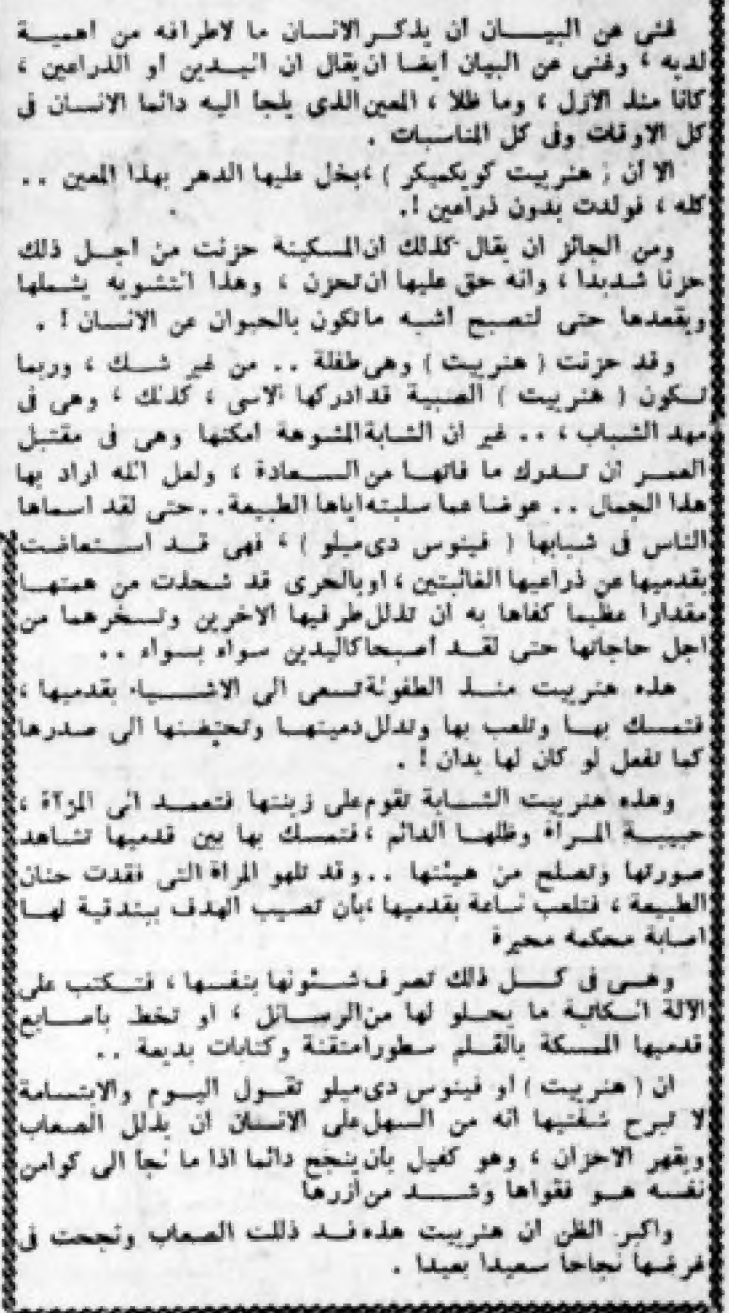 غنى عن البيان ان يذكر الانسان ما لاطرافه من اهمية
لديه ، وغنى عن البيان ايضا ان يقال ان اليدين او الذراعين ،
كانا منذ الازل ، وما ظلا ، المعين الذى يلجا اليه دائما الانسان فى
كل الاوقات وفى كل المناسبات .
الا أن ( هنرييت كويكميكر ) ،بخل عليها الدهر بهذا المعين ..
كله ، فولدت بدون ذراعين !.
ومن الجائز ان يقال كذلك ان المسكينة حزنت من اجل ذلك
حزنا شديدا ، وانه حق عليها ان تحزن ، وهذا التشويه يشملها
ويقعدها حتى لتصبح أشبه ماتكون بالحيوان عن الانسان ! .
وقد حزنت ( هنرييت ) وهى طفلة .. من غير شك ، وربما
تكون ( هنرييت ) الصبية قد ادركها الاسى ، كذلك ، وهى فى
مهد الشباب ، .. غير ان الشابة المشوهة امكنها وهى فى مقتبل
العمر ان تدرك ما فاتها من السعادة ، ولعل الله اراد بها
هذا الجمال .. عوضا عما سلبته اياها الطبيعة..حتى لقد اسماها
الناس فى شبابها ( فينوس دى ميلو ) ، فهى قد استعاضت
بقدميها عن ذراعيها الغائبتين ، اوبالحرى قد شحذت من همتها
مقدارا عظيما كفاها به ان تذلل طرفيها الاخرين وتسخرهما من
اجل حاجاتها حتى لقد أصبحا كاليدين سواء بسواء ..
هذه هنرييت منذ الطفولة تسعى الى الاشياء بقدميها ،
فتمسك بها وتلعب بها وتدلل دميتها وتحتضنها الى صدرها
كما تفعل لو كان لها يدان ! .
وهذه هنرييت الشابة تقوم على زينتها فتعمد الى المرآة ،
حبيبة المرأة وظلها الدائم ،فتمسك بها بين قدميها تشاهد
صورتها وتصلح من هيئتها ..وقد تلهو المراة التى فقدت حنان
الطبيعة ، فتلعب ساعة بقدميها ،بأن تصيب الهدف ببندقية لها
اصابة محكمة محيرة
وهى فى كل ذلك تصرف شئونها بنفسها ، فتكتب على
الآلة الكاتبة ما يحلو لها من الرسائل ، او تخط بأصابع
قدميها الممسكة بالقلم سطورا متقنة وكتابات بديعة ..
ان ( هنرييت ) أو فينوس دى ميلو تقول اليوم والابتسامة
لا تبرح شفتيها انه من السهل على الانسان ان يذلل الصعاب
ويقهر الاحزان ، وهو كفيل بأن ينجح دائما اذا ما لجأ الى كوامن
نفسه هو فقواها وشد من أزرها
واكبر الظن ان هنرييت هذه قد ذللت الصعاب ونجحت فى
غرضها نجاحا سعيدا بعيدا .